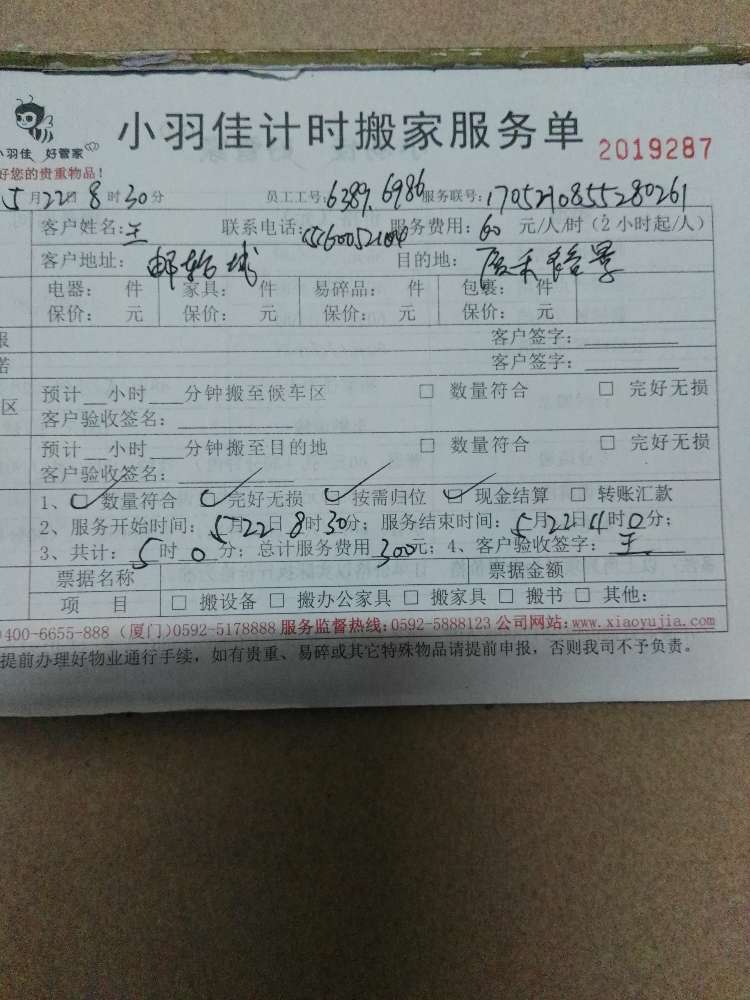 小羽佳 好管家
小羽佳计时搬家服务单 2019287
好您的贵重物品！
5月22日8时30分 员工工号:6389.6986 服务联号:1705210855280261
客户姓名:王 联系电话: 服务费用:60元/人/时(2小时起/人)
客户地址:邮轮城 目的地:
电器: 件 家具: 件 易碎品: 件 包裹: 件
保价: 元 保价: 元 保价: 元 保价: 元
客户签字:
客户签字:
区 预计__小时___分钟搬至候车区 □ 数量符合 □ 完好无损
客户验收签名:
预计__小时___分钟搬至目的地 □ 数量符合 □ 完好无损
客户验收签名:
1、☑数量符合 ☑完好无损 ☑按需归位 ☑现金结算 □ 转账汇款
2、服务开始时间:5月22日8时30分; 服务结束时间:5月22日 时0分;
3、共计:5时0分; 总计服务费用300元; 4、客户验收签字:王
票据名称 票据金额
项 目 □ 搬设备 □ 搬办公家具 □ 搬家具 □ 搬书 □ 其他:
400-6655-888 (厦门)0592-5178888 服务监督热线:0592-5888123 公司网站:www.xiaoyujia.com
提前办理好物业通行手续，如有贵重、易碎或其它特殊物品请提前申报，否则我司不予负责。